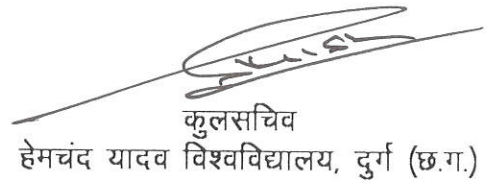 कुलसचिव
हेमचंद यादव विश्वविद्यालय, दुर्ग (छ.ग.)